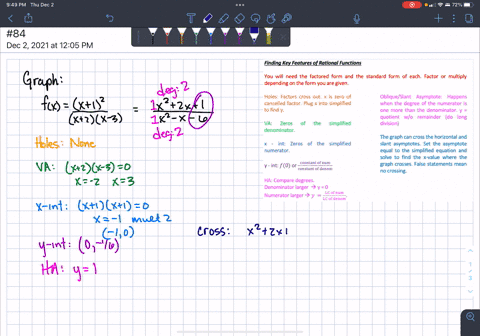 9:49 PM Thu Dec 2
72%
#84
Dec 2, 2021 at 12:05 PM
Graph:
deg: 2
f(x) = (x+1)² / (x+2)(x-3) = 1x²+2x+1 / 1x²-x-6
deg: 2
Holes: None
VA: (x+2)(x-3)=0
x=-2 x=3
x-int: (x+1)(x+1)=0
x=-1 mult 2
(-1,0)
y-int: (0,-1/6)
HA: y=1
cross: x²+2x1
Finding Key Features of Rational Functions
You will need the factored form and the standard form of each. Factor or multiply
depending on the form you are given.
Holes: Factors cross out x is zero of
cancelled factor. Plug x into simplified
to find y.
VA: Zeros of the simplified
denominator.
x - int: Zeros of the simplified
numerator.
y - int: f(0) or constant of num / constant of denom
HA: Compare degrees.
Denominator larger → y = 0
Numerator larger → y = LC of num / LC of denom
Oblique/Slant Asymptote: Happens
when the degree of the numerator
is one more than the denominator. y =
quotient w/o remainder (do long
division)
The graph can cross the horizontal and
slant asymptotes. Set the asymptote
equal to the simplified equation and
solve to find the x-value where the
graph crosses. False statements mean
no crossing.